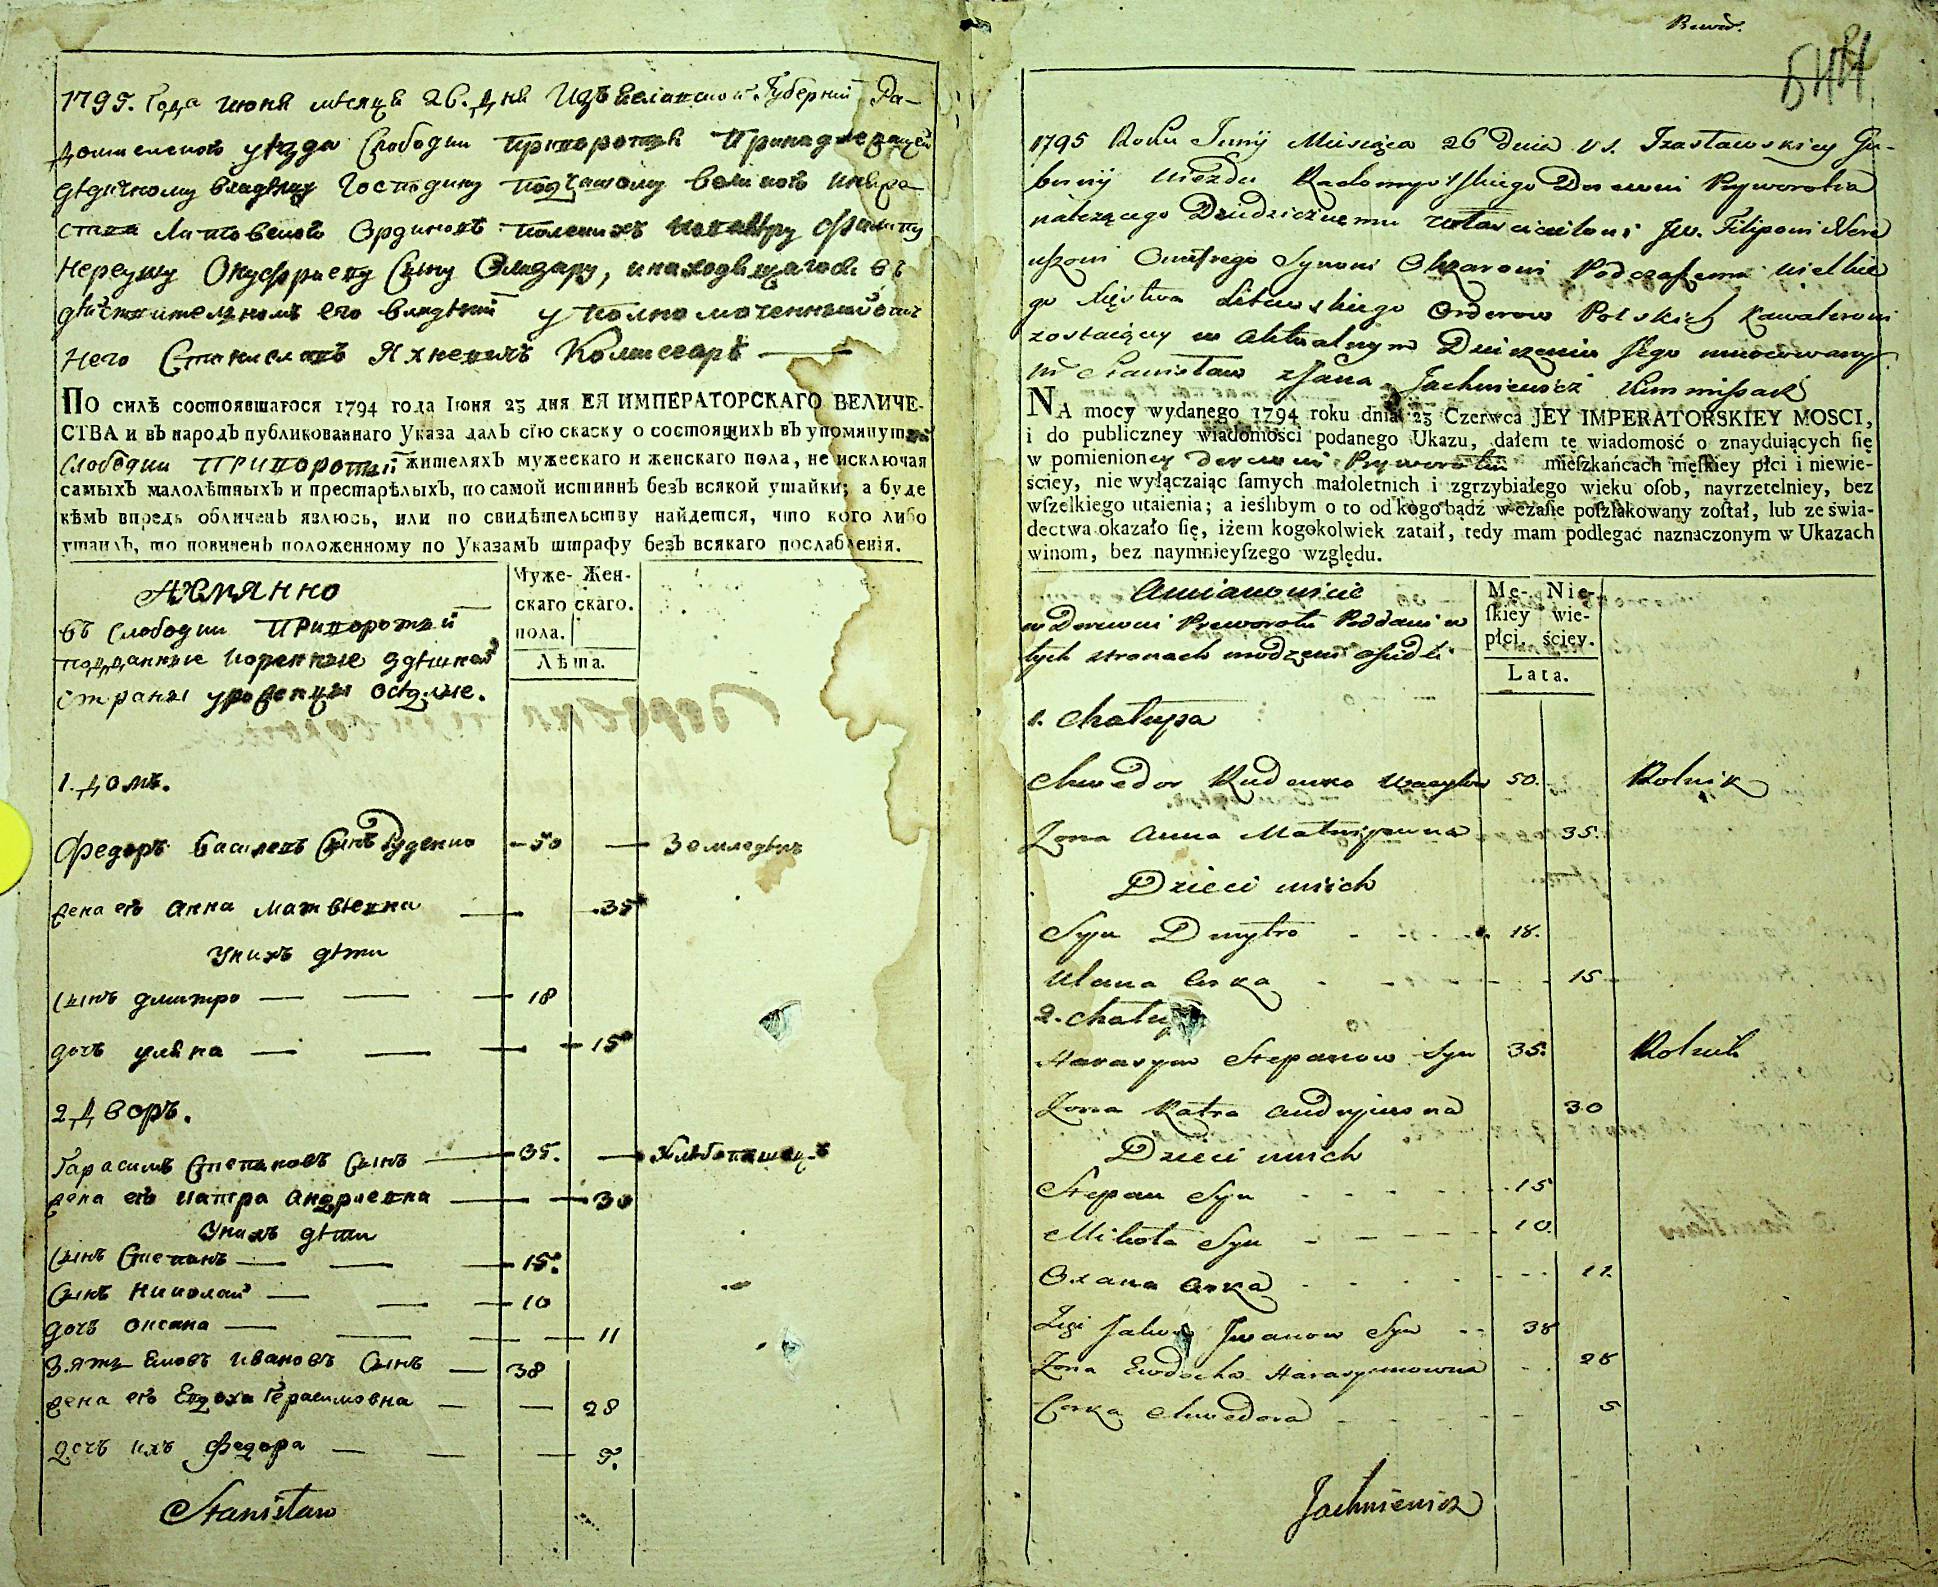 1795. Года июня месяца 26. дня Изъяславской Губерний Ра-
домысльского уезда Слободки Приворотья Принадлежащей
дѣдичному владѣльцу Господину подчашому великого княже-
ства Литовского Ординовъ польскихъ кавалеру Филипу
Нереушу Онуфриеву Сыну Олизару, и находящагося въ
дѣйствительномъ его владѣнии уполномоченный отъ
Него Станиславъ Яхневичъ Комиссаръ
По силѣ состоявшагося 1794 года Іюня 23 дня ЕЯ ИМПЕРАТОРСКАГО ВЕЛИЧЕ-
СТВА и въ народъ публикованнаго Указа далъ сію скаску о состоящихъ въ упомянутой
Слободки Приворотьи жителяхъ мужескаго и женскаго пола, не исключая
самыхъ малолѣтныхъ и престарѣлыхъ, по самой истиннѣ безъ всякой утайки; а буде
кѣмъ впредь обличенъ явлюсь, или по свидѣтельству найдется, что кого либо
утаилъ, то повиненъ положенному по Указамъ штрафу безъ всякаго послабленія.
Имянно
Муже- Жен-
скаго скаго.
пола.
Лѣта.
въ Слободки Приворотьи
подданные коренные здѣшней
страны уроженцы оседлые.
1. домъ.
Федоръ Василевъ Сынъ Руденко 50 Земледѣлъ
жена его Анна Матвѣевна 35
У нихъ дѣти
Сынъ Дмитро 18
дочь уляна 15
2 дворъ.
Гарасимъ Степановъ Сынъ 35. Хлѣбопашецъ
жена его Катра Андриевна 30
У нихъ дѣти
Сынъ Степанъ 15.
Сынъ Николай 10
дочь Оксана 11
Зять Яковъ Ивановъ Сынъ 38
жена его Евдоха Герасимовна 28
дочь ихъ Федора 5.
Stanisław
1795 Roku Junij Miesiąca 26 Dnia V. S. Izasławskiey Gu-
bernij Uiezdu Radomyslskiego Derewni Pryworotia
należącego Dziedzicznemu właścicielowi Jw. Filipowi Nere
uszowi Onufrego Synowi Olizarowi Podczaszemu Wielkie
go Xięstwa Litewskiego Orderow Polskich Kawalerowi
zostaiącey w aktualnym Dzierżeniu Jego umocowany
Stanisław z Jana Jachniewicz Kommissarz
NA mocy wydanego 1794 roku dnia 23 Czerwca JEY IMPERATORSKIEY MOSCI,
i do publiczney wiadomości podanego Ukazu, dałem tę wiadomość o znayduiących ſię
w pomienioney derewni Pryworotiu mieſzkańcach męſkiey płci i niewie-
ściey, nie wyłączaiąc ſamych małoletnich i zgrzybiałego wieku oſob, nayrzetelniey, bez
wſzelkiego utaienia; a ieślibym o to od kogo bądź w czaſie poſzlakowany zoſtał, lub ze świa-
dectwa okazało ſię, iżem kogokolwiek zataił, tedy mam podlegać naznaczonym w Ukazach
winom, bez naymnieyſzego względu.
Mianowicie
Mę- Nie-
ſkiey wie-
płci. ściey.
Lata.
w Derewni Preworotu Poddani w
tych stronach urodzeni osiedli
1. Chałupa
Chwedor Rudenko Wasylow 50. Rolnik
Zona Anna Matwijewna 35.
Dzieci u nich
Syn Dmytro 18.
Ulana Corka 15
2. Chałupa
Harasym Stepanow Syn 35. Rolnik
Zona Katra Andryiewna 30
Dzieci u nich
Stepan Syn 15
Mikoła Syn 10.
Oxana Corka 11.
Zięć Jakow Jwanow Syn 38
Zona Ewdocha Harasymowna 28
Corka Chwedora 5
Jachniewicz